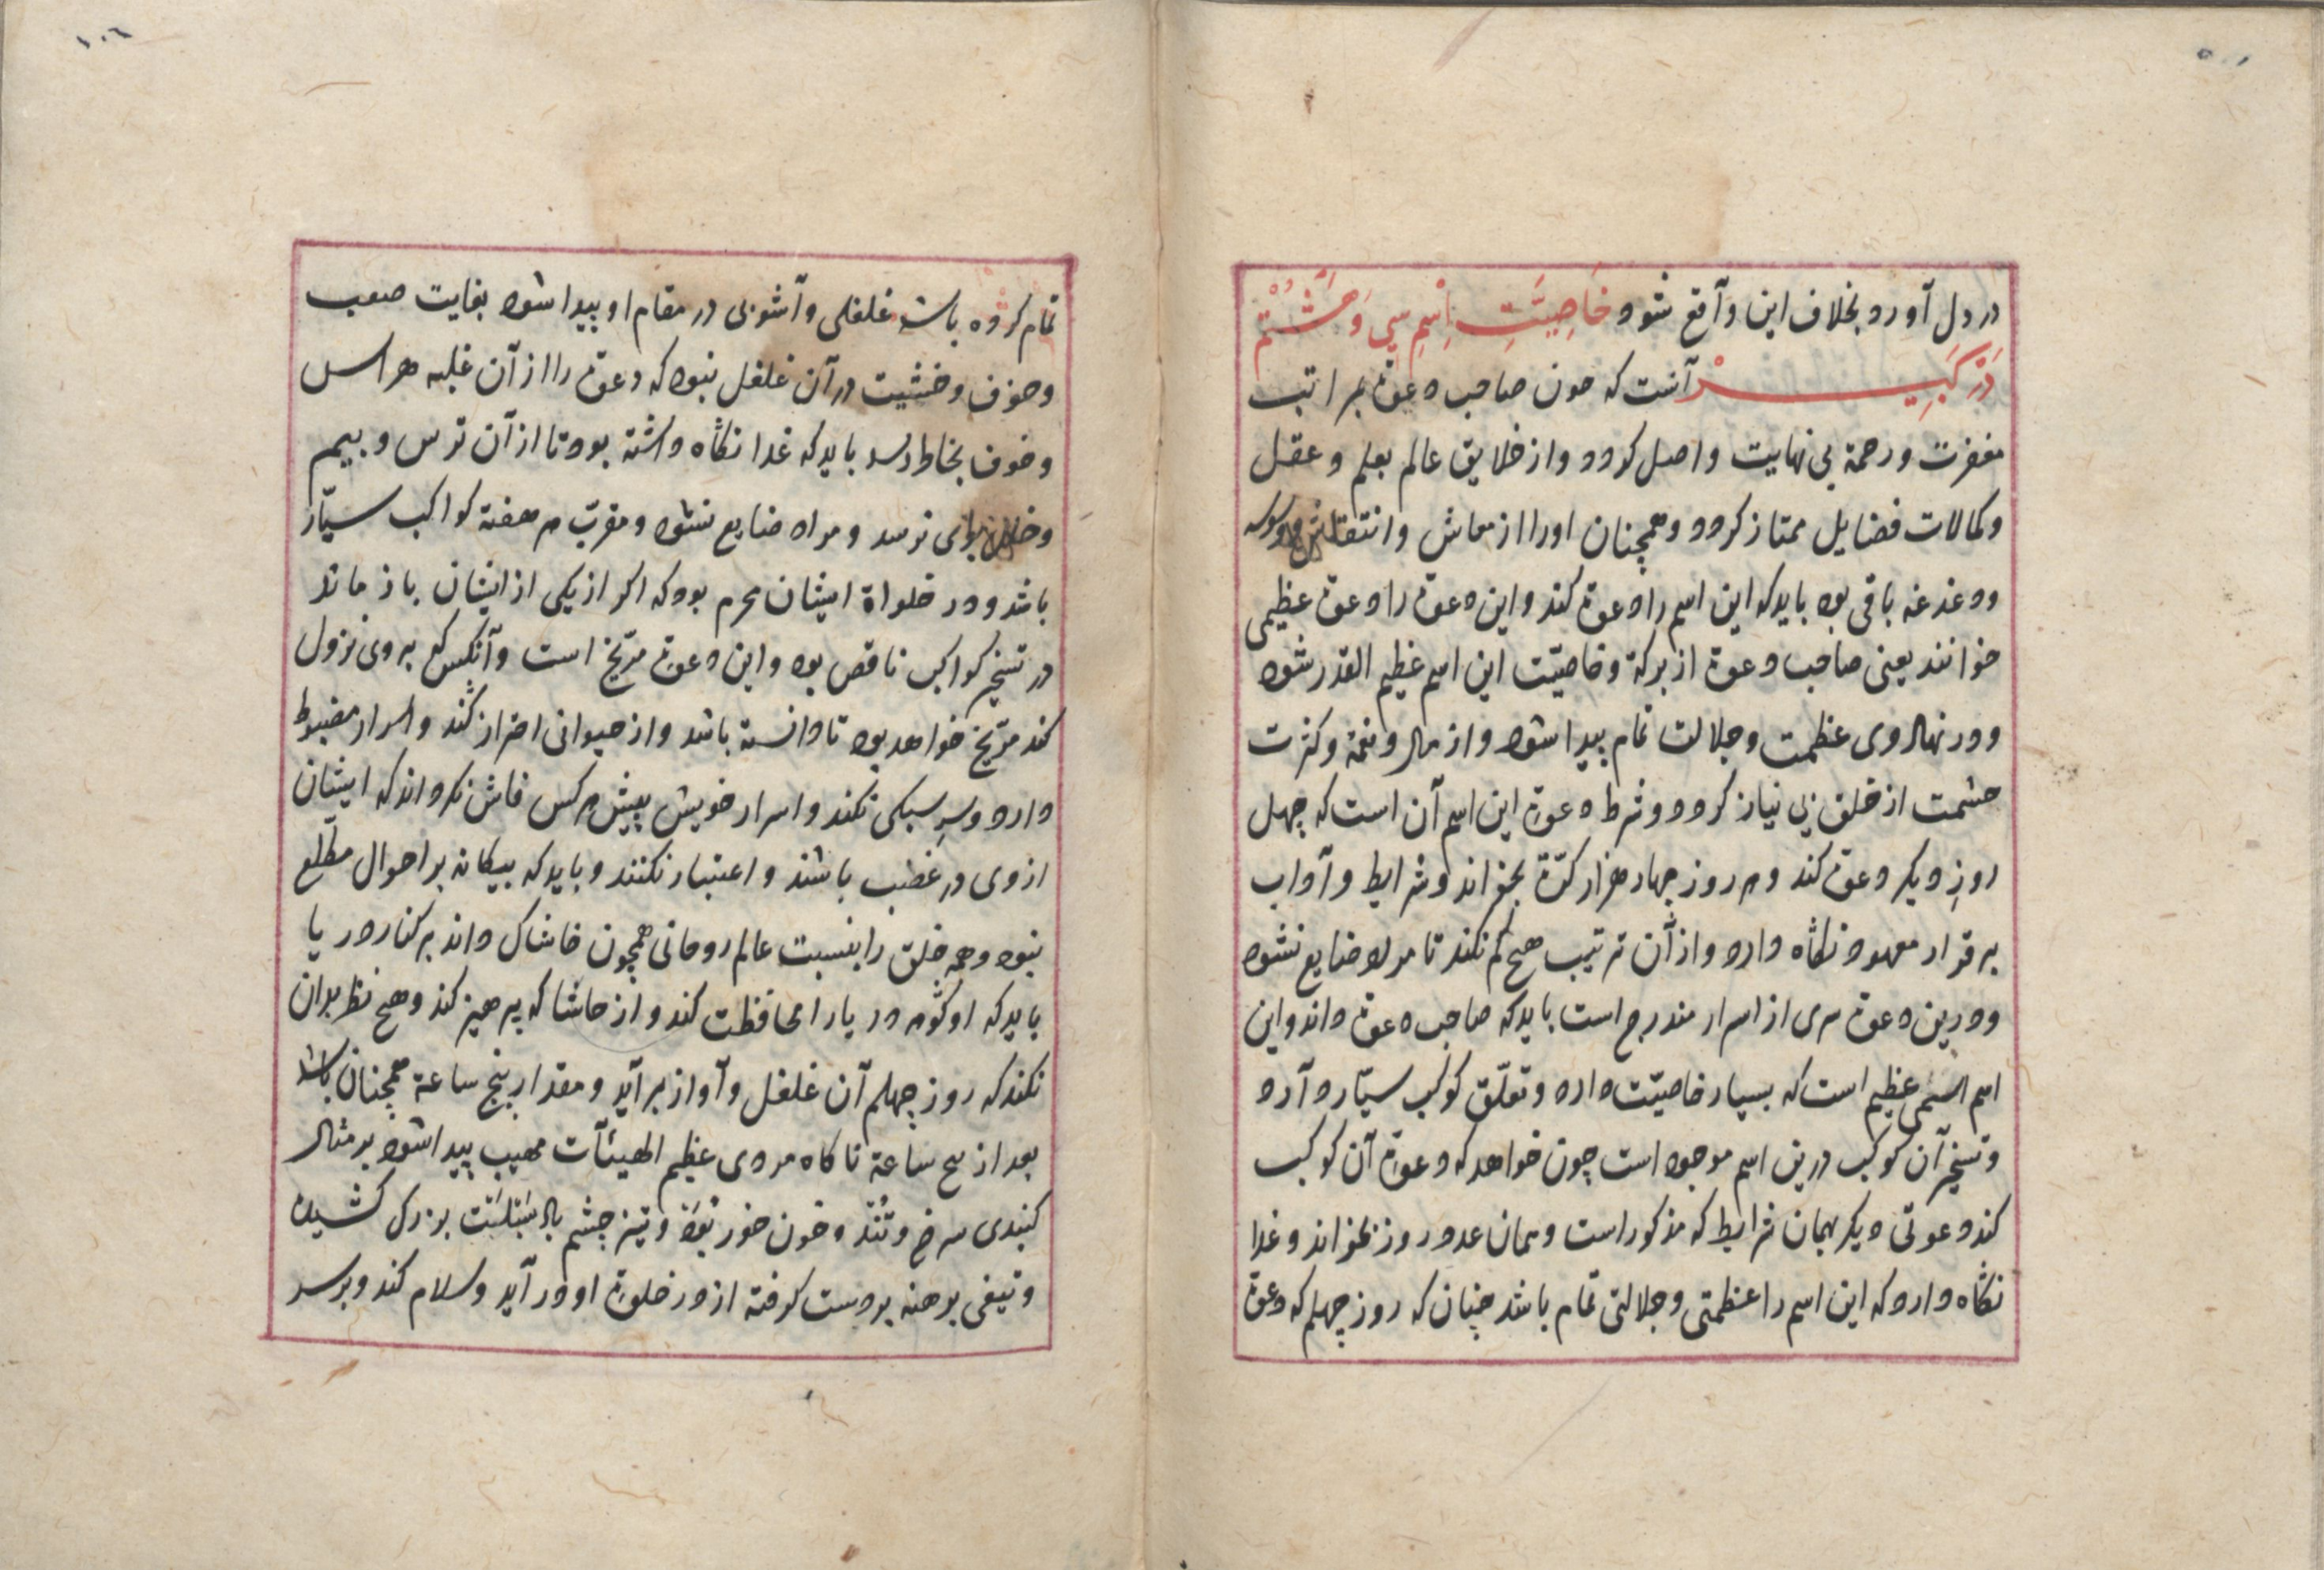 در دل آورد بخلاف این واقع شود خَاصِیَّتِ اِسْمِ سِی وَهَشْتُمْ
دَرْ کَبِیرْ آنست که چون صاحب دعوة بمراتب
مغفرت ورحمة بی نهایت واصل کردد واز خلایق عالم بعلم وعقل
وکمالات فضایل ممتاز کردد وهمچنان اورا از معاش وانتقاش وسوسه
ودغدغه باقی بود باید که این اسم را دعوة کند واین دعوة را دعوة عظیمی
خوانند یعنی صاحب دعوة از برکة وخاصیّت این اسم عظیم القدر شود
ودر نهاد وی عظمت وجلالت تمام پیدا شود واز مال ونعمة وکثرت
حشمت از خلق بی نیاز کردد وشرط دعوة این اسم آن است که چهل
روز دیکر دعوة کند وهر روز چهار هزار کرّة بخواند وشرایط وآداب
بر قرار معهود نکاه دارد واز آن ترتیب هیچ کم نکند تا مراد ضایع نشود
ودرین دعوة سری از اسرار مندرج است باید که صاحب دعوة داند واین
اسم اسمی عظیم است که بسیار خاصیّت دارد وتعلّق کوکب سیّاره دارد
وتسخیر آن کوکب درین اسم موجود است چون خواهد که دعوة آن کوکب
کند دعوتی دیکر بهمان شرایط که مذکور است وهمان عدد روز بخواند وغدا
نکاه دارد که این اسم را عظمتی وجلالتی تمام باشد چنان که روز چهلم که دعوة
تمام کرده باشد غلغلی وآشوبی در مقام او پیدا شود بغایت صعب
وخوف وخشیت در آن غلغل بنود که دعوة را از آن غلبه هراس
وخوف بخاطر رسد باید که غدا نکاه داشته بود تا از آن ترس وبیم
وخلل بوی نرسد ومراد ضایع نشود ومقرب هر هفته کواکب سیّار
باشد ودر خلواة ایشان محرم بود که اکر از یکی از ایشان باز ماند
در تسخیر کواکب ناقص بود واین دعوة مرّیخ است وآنکس که بروی نزول
کند مرّیخ خواهد بود تا دانسته باشد واز حیوانی احتراز کند واسرار مضبوط
دارد وسر سبکی نکند واسرار خویش پیش هر کس فاش نکرداند که ایشان
ازوی در غضب باشند واعتبار نکنند وباید که بیکانه بر احوال مطّلع
بنود وهمه خلق را بنسبت عالم روحانی همچون خاشاک داند بر کنار دریا
باید که او کوهر دریا را محافظت کند واز خاشاک پرهیز کند وهیچ نظر بدان
نکند که روز چهلم آن غلغل وآواز برآید ومقدار پنج ساعة همچنان باشد
بعد از پنج ساعة ناکاه مردی عظیم الهیئآت مهیب پیدا شود بر مثال
کنبدی سرخ وتند وخون خور بود وتیز چشم بالا بَبُلَست بزرک کشیده
وتیغی برهنه بردست کرفته از در خلوة او در آید وسلام کند وبرسر